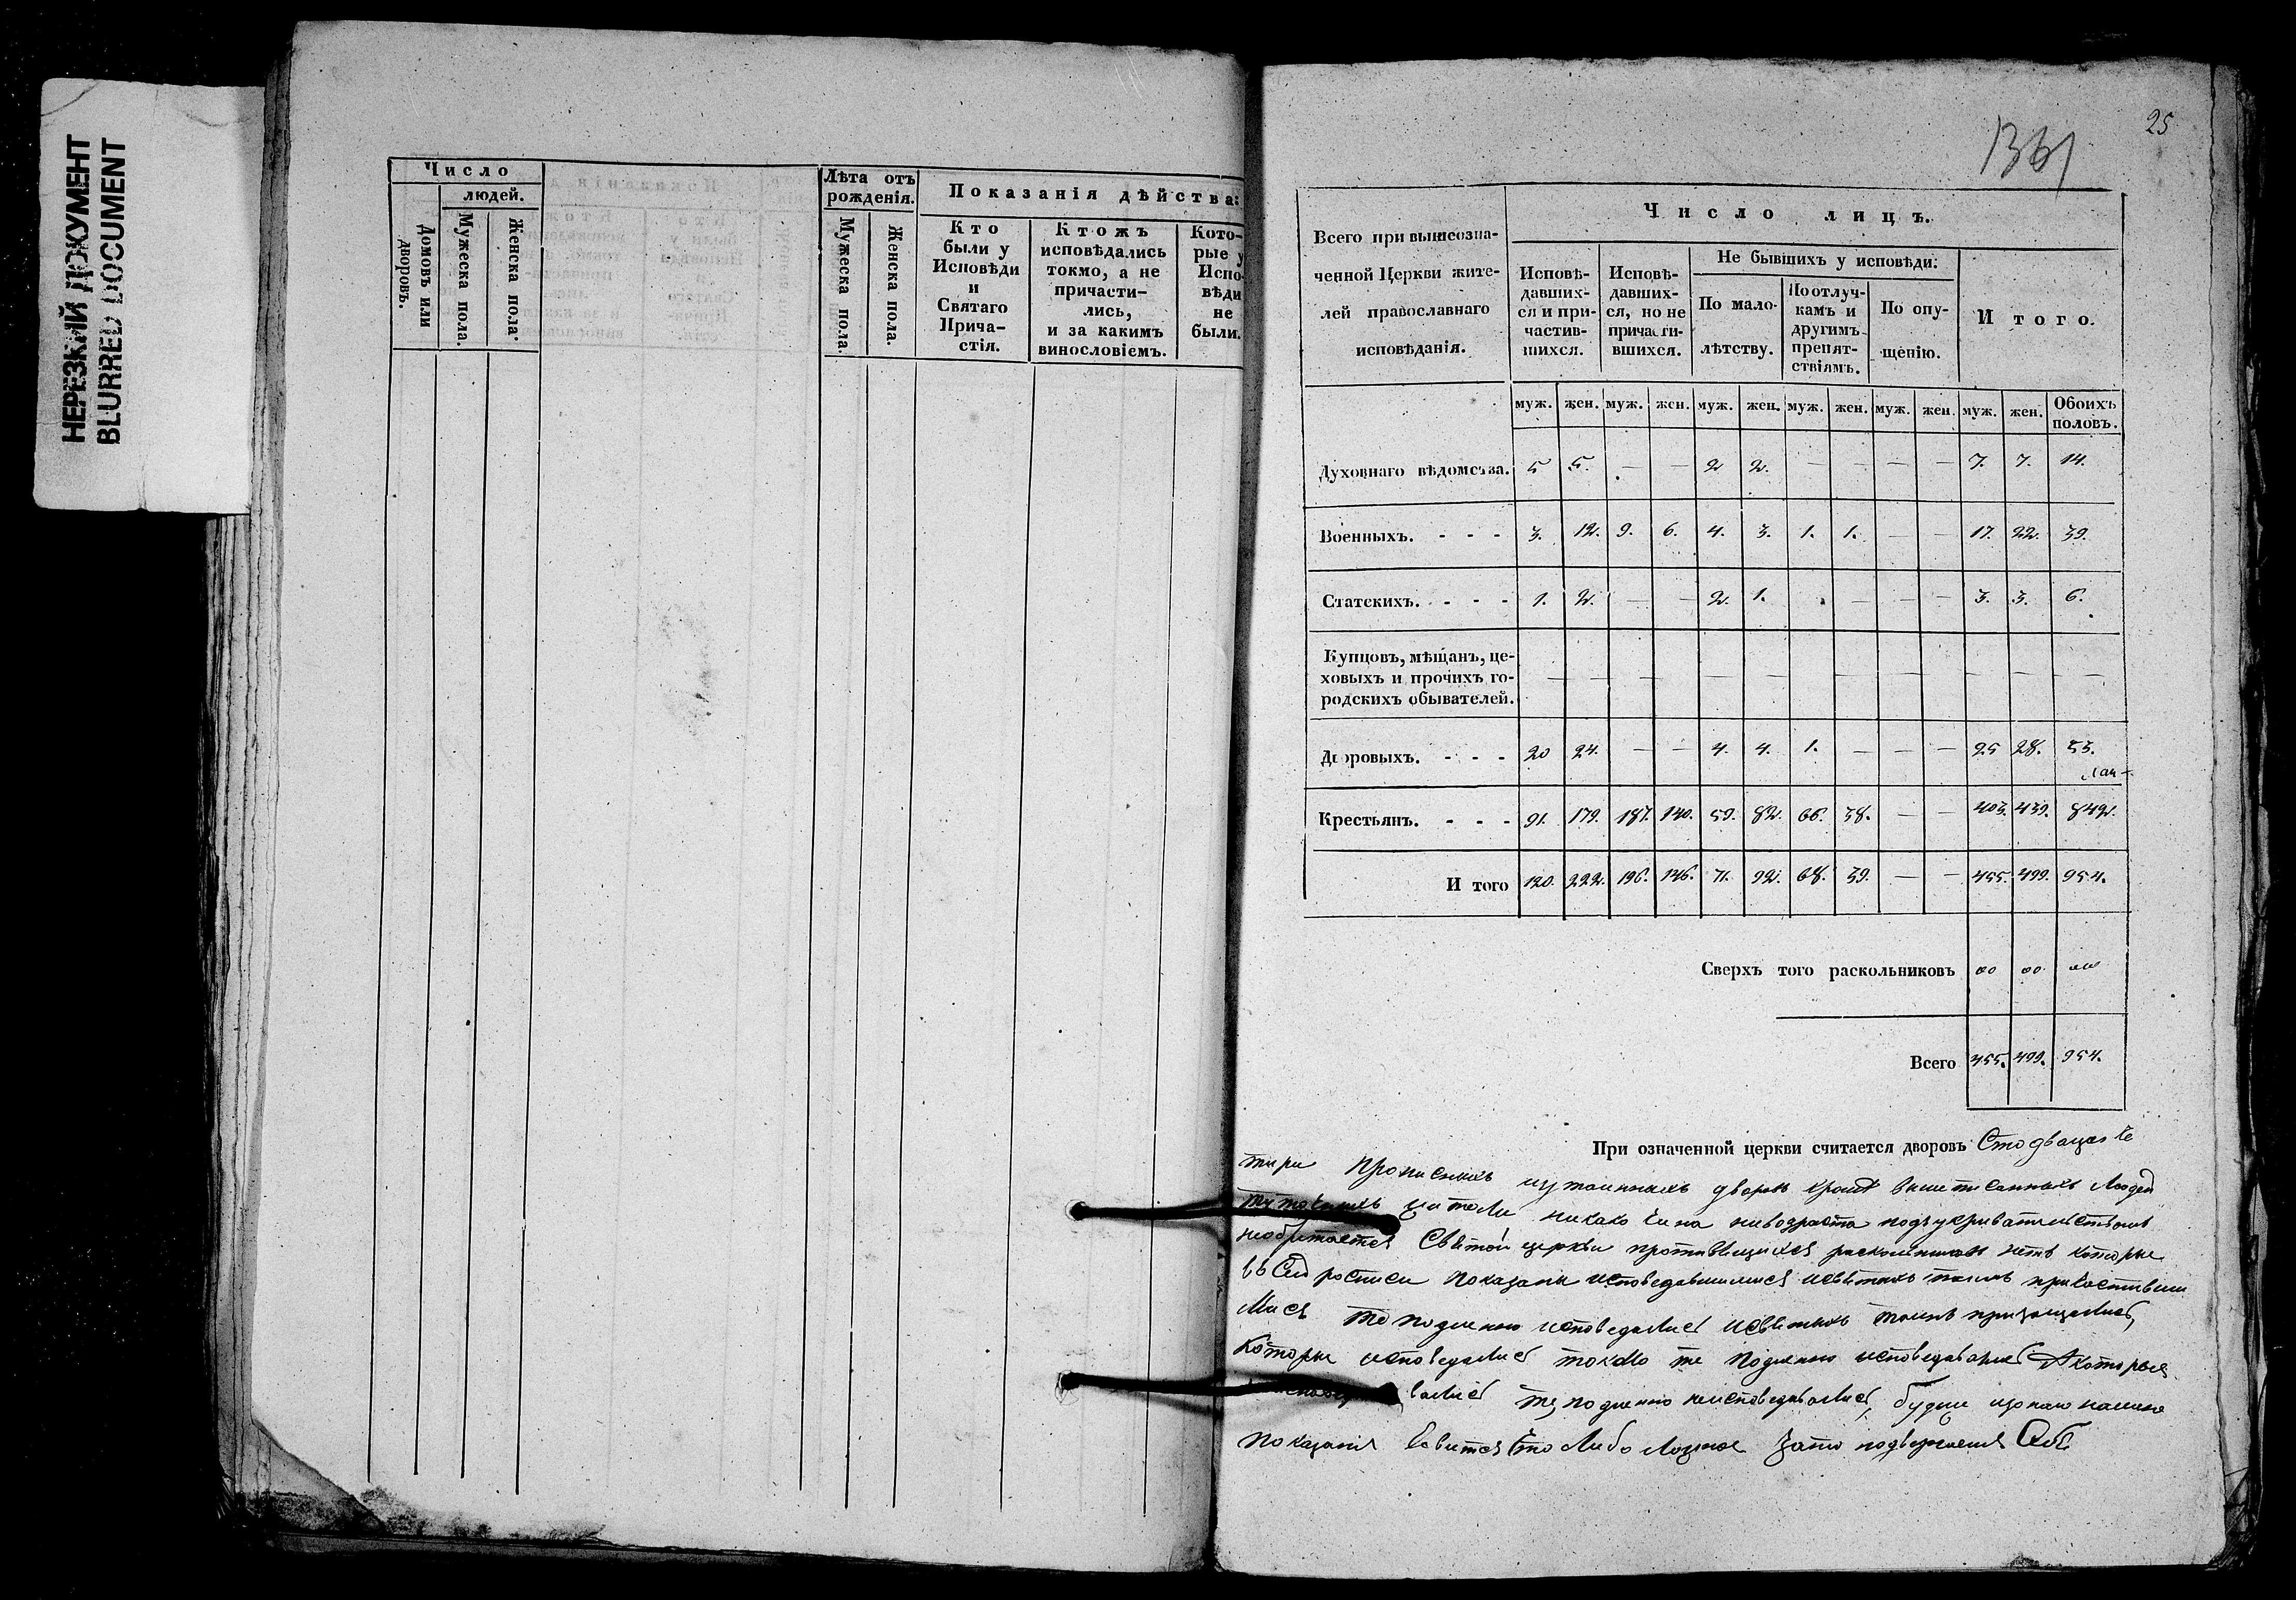 НЕРЕЗКИЙ ДОКУМЕНТ
BLURRED DOCUMENT
Число
людей.
Домовъ или дворовъ.
Мужеска пола.
Женска пола.
Лѣта отъ рожденія.
Мужеска пола.
Женска пола.
Показанія дѣйства:
Кто были у Исповѣди и Святаго Прича-стія.
Ктожъ исповѣдались токмо, а не причасти-лись, и за какимъ винословіемъ.
Кото-рые у Испо-вѣди не были.
25
1361
Всего при вышеозна-
ченной Церкви жите-
лей православнаго
исповѣданія.
Число лицъ.
Исповѣ-давших-ся и при-частив-шихся.
Исповѣ-давших-ся, но не причасти-вшихся.
Не бывшихъ у исповѣди:
По мало-лѣтству.
По отлуч-камъ и другимъ препят-ствіямъ.
По опу-щенію.
Итого.
муж. жен. муж. жен. муж. жен. муж. жен. муж. жен. муж. жен. Обоихъ половъ.
Духовнаго вѣдомства. 5 5. — — 2 2. — — — — 7. 7. 14.
Военныхъ. - - - 3. 12. 9. 6. 4. 3. 1. 1. — — 17. 22. 39.
Статскихъ. - - - 1. 2. — — 2. 1. — — — 3. 3. 6.
Купцовъ, мѣщанъ, це-
ховыхъ и прочихъ го-
родскихъ обывателей. — — — — — — — — — — — — —
Дворовыхъ. - - - 20 24. — — 4. 4. 1. — — — 25 28. 53.
Крестьянъ. - - - 91. 179. 187. 140. 59. 82. 66. 38. — — 403. 439. 842.
И того 120. 222. 196. 146. 71. 92. 68. 39. — — 455. 499. 954.
Сверхъ того раскольниковъ 00 00. 000
Всего 455. 499. 954.
При означенной церкви считается дворовъ Сто двацать че
тыри Прописныхъ утаенныхъ дворовъ кроме вышеписанныхъ Людей
жители никако чина
необретается Святой церкви противящихся раскольниковъ нетъ которые
въ Сей росписи показаны исповедавшимися и святыхъ таинъ причаствши
Мися те подленно исповедались и святыхъ таинъ
Которые исповедались токмо те подленно исповедавались А которыя
вались те подленно неисповедавались, будие
показания явится что Либо Ложное зато подвергаемся